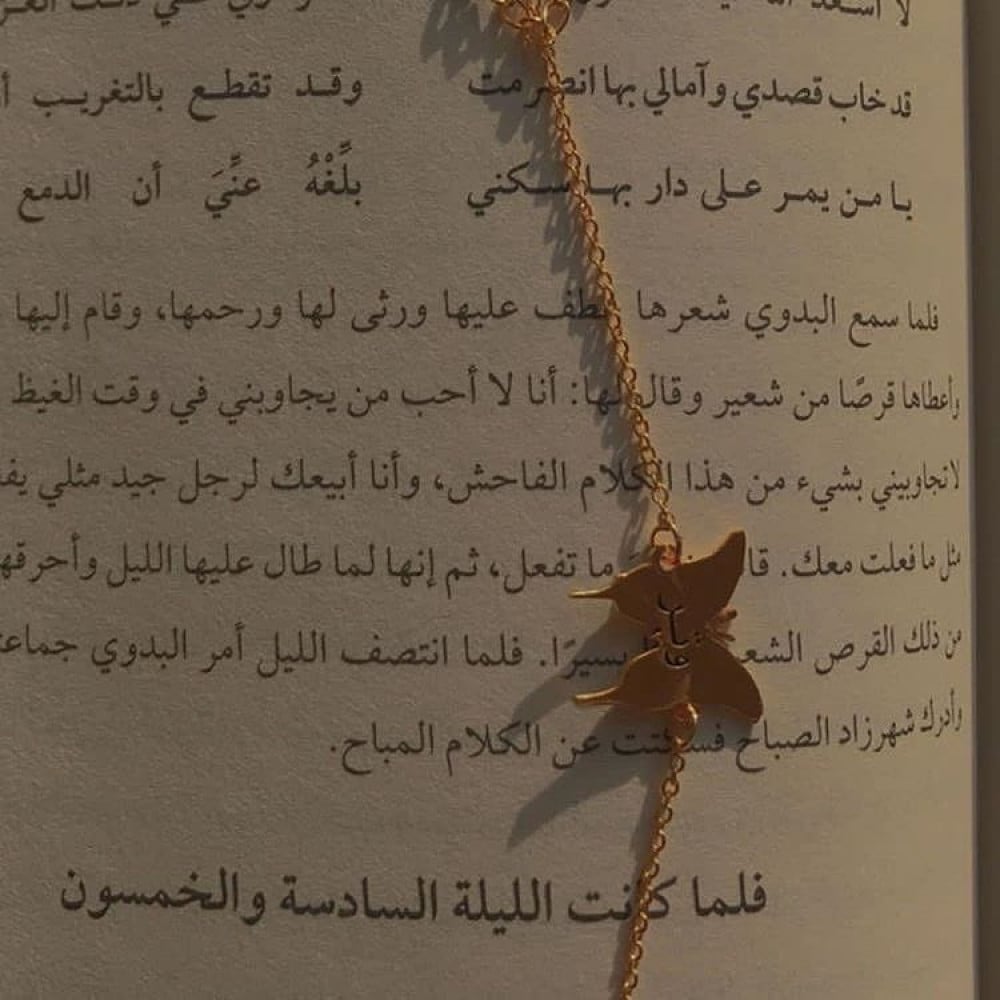 قد خاب قصدي وآمالي بها انصرمت وقد تقطع بالتغريب
يا من يمر على دار بها سكني بلِّغْهُ عنِّيَ أن الدمع
فلما سمع البدوي شعرها عطف عليها ورثى لها ورحمها، وقام إليها
وأعطاها قرصًا من شعير وقال لها: أنا لا أحب من يجاوبني في وقت الغيظ
لا تجاوبيني بشيء من هذا الكلام الفاحش، وأنا أبيعك لرجل جيد مثلي
مثل ما فعلت معك. ما تفعل، ثم إنها لما طال عليها الليل وأحرقها
من ذلك القرص الشعير يسيرًا. فلما انتصف الليل أمر البدوي
وأدرك شهرزاد الصباح فسكتت عن الكلام المباح.
فلما كانت الليلة السادسة والخمسون